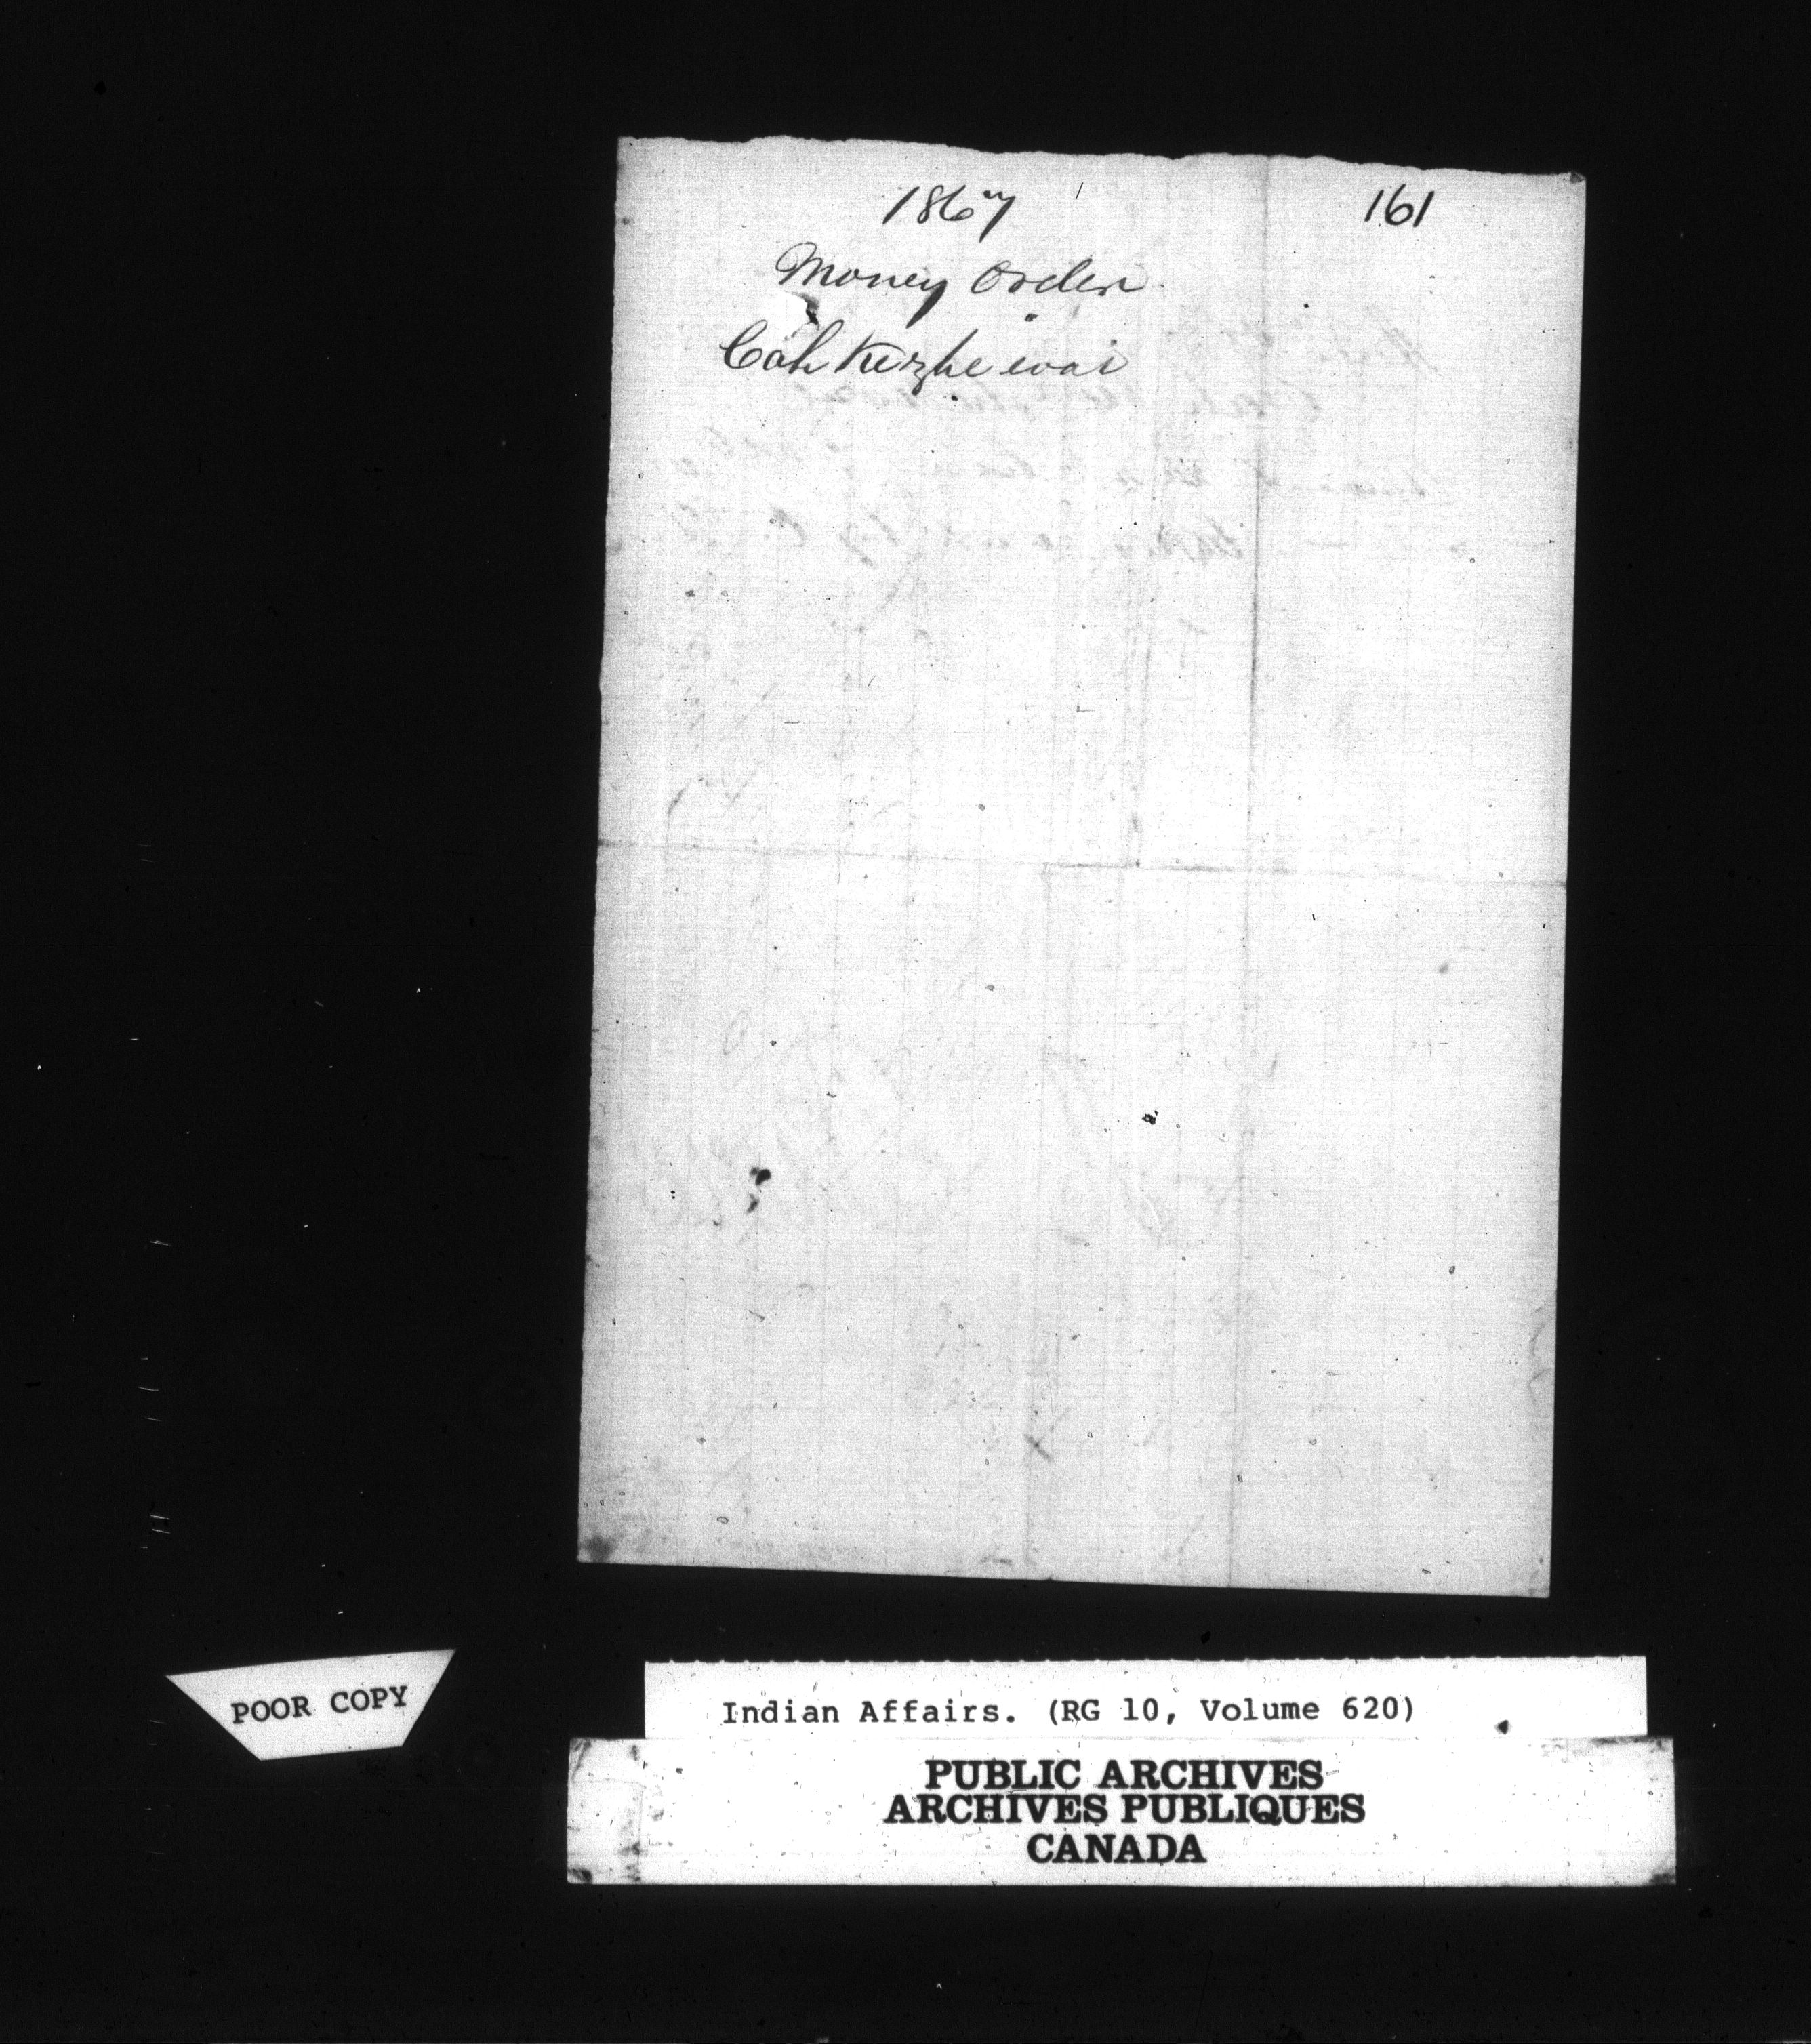 1867 161
Money Order
Cah Kezhe wai
POOR COPY
Indian Affairs. (RG 10, Volume 620)
PUBLIC ARCHIVES
ARCHIVES PUBLIQUES
CANADA